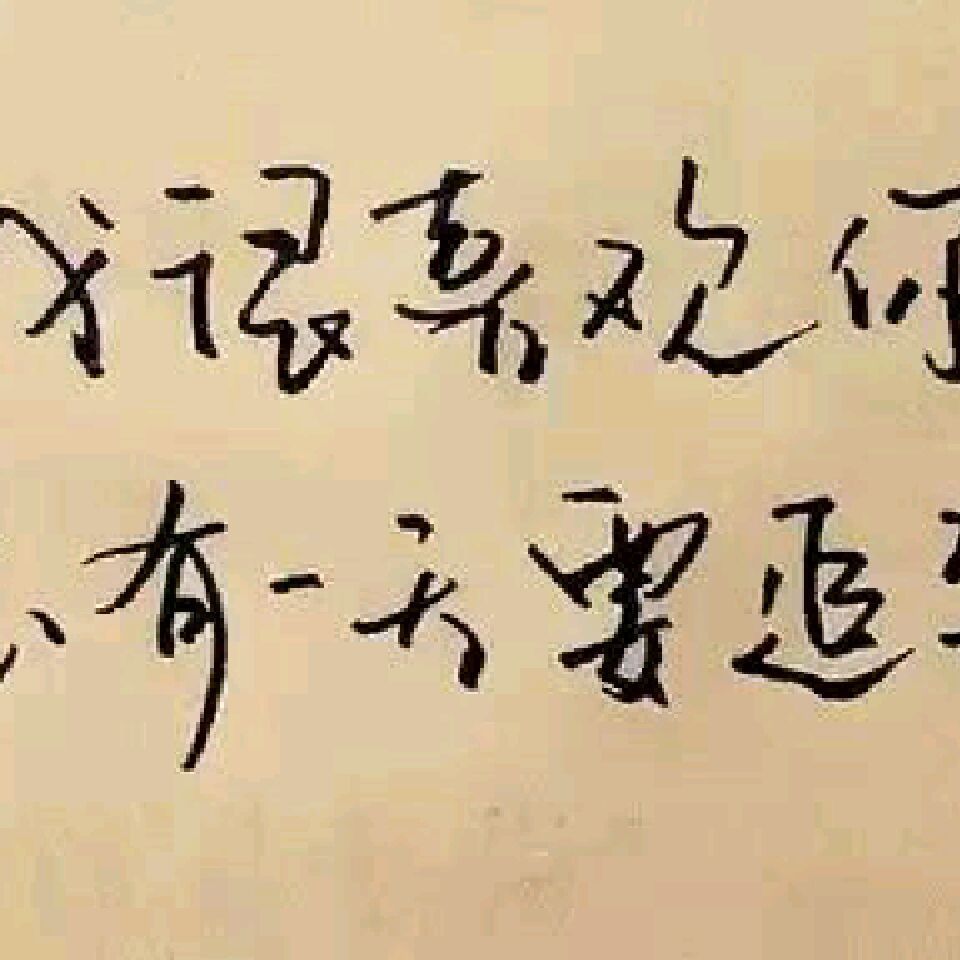 我很喜欢你
有一天要追